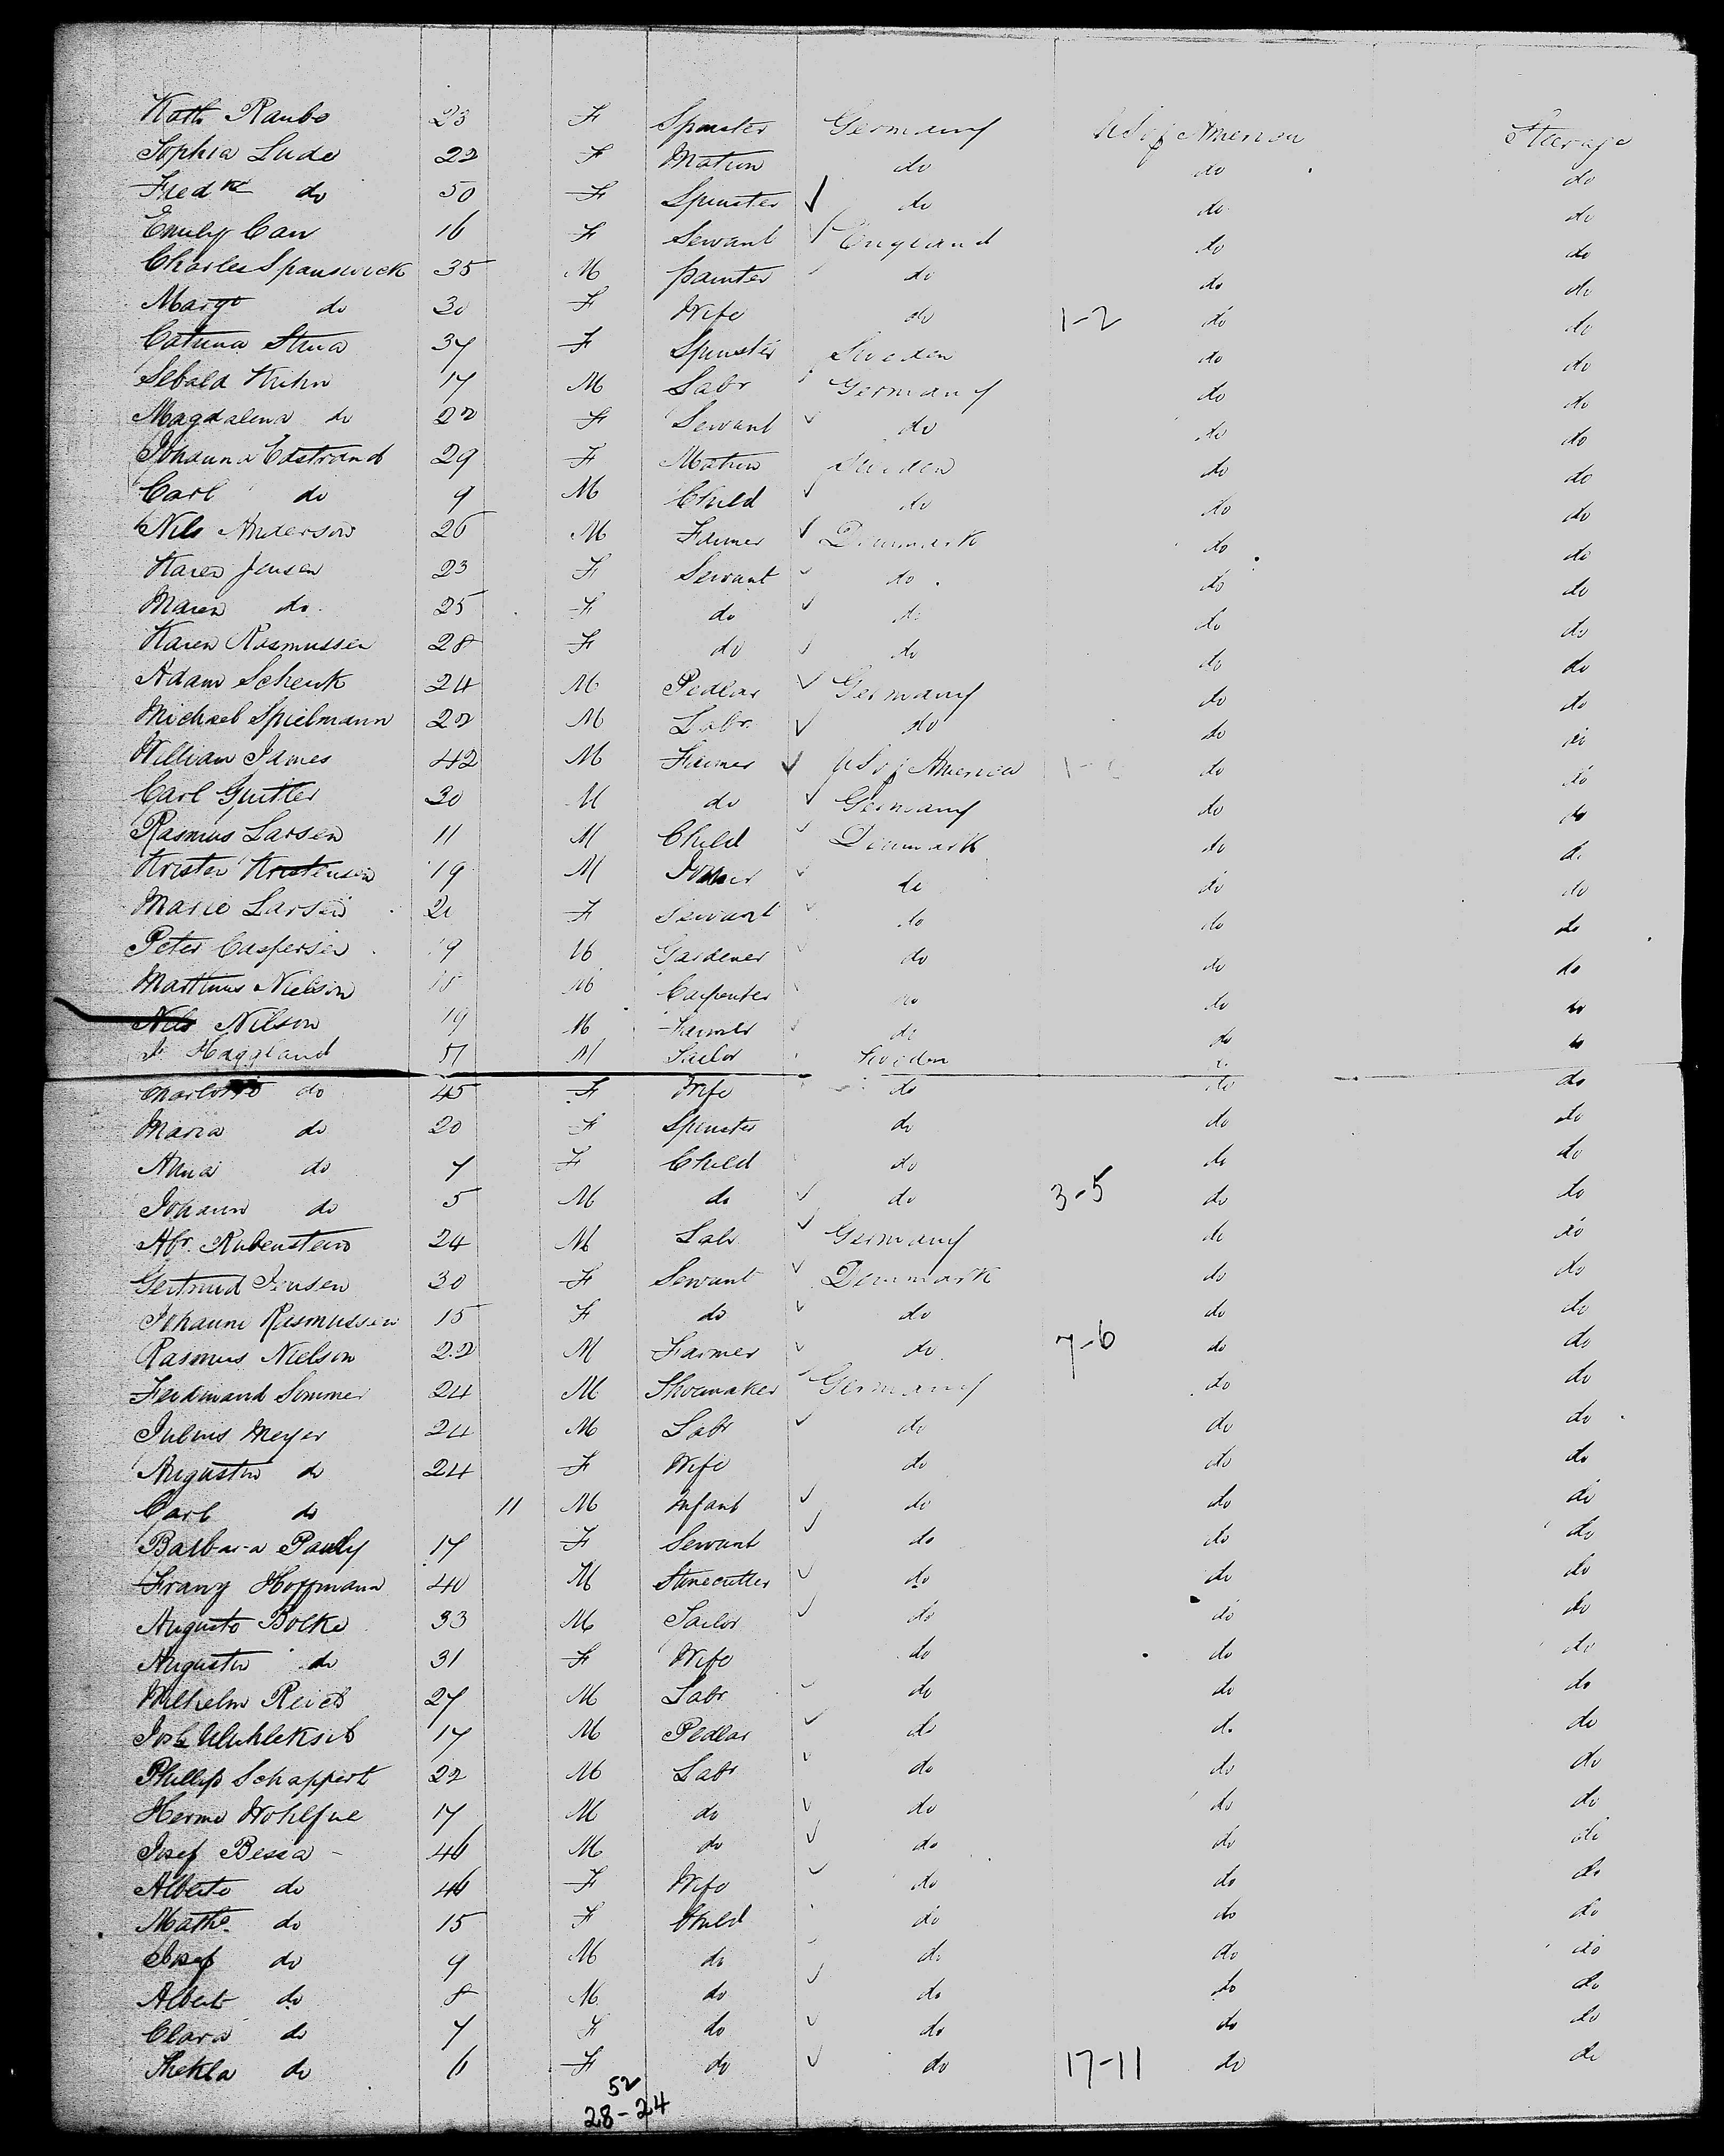 Kath Raube 23 F Spinster Germany US of America Steerage
Sophia Lude 22 F Matron do do do
Fredke do 50 F Spinster do do do
Emily Carr 16 F Servant England do do
Charles Spanswick 35 M painter do do do
Margt do 30 F Wife do 1-2 do do
Catrina 37 F Spinster Sweden do do
Sebald Kuhn 17 M Labr Germany do do
Magdalena do 22 F Servant do do do
Johanna Edstrand 29 F Matron Sweden do do
Carl do 9 M Child do do do
Nils Anderson 26 M Farmer Denmark do do
Karen Jensen 23 F Servant do do do
Maren do 25 F do do do do
Karen Rasmussen 28 F do do do do
Adam Schenk 24 M Pedlar Germany do do
Michael Spielmann 22 M Labr do do do
William James 42 M Farmer US of America do do
Carl Guttler 30 M do Germany do do
Rasmus Larsen 11 M Child Denmark do do
Kristen Kristensen 19 M do do do
Marie Larsen F Servant do do do
Peter Caspersen 19 M Gardener do do do
Marthinus Nielson 18 M Carpenter do do do
Nils Nilson 19 M Farmer do do do
Haggland 51 M Sailor Sweden do do
Charlotte do 45 F Wife do do do
Maria do 20 F Spinster do do do
Anna do 7 F Child do do do
Johann do 5 M do do 3-5 do do
Abr. Rubenstein 24 M Labr Germany do do
Gertrud Jensen 30 F Servant Denmark do do
Johanne Rasmussen 15 F do do do do
Rasmus Nielson 22 M Farmer do 7-6 do do
Ferdinand Sommer 24 M Shoemaker Germany do do
Julius Meyer 24 M Labr do do do
Auguste do 24 F Wife do do do
Carl do 11 M Infant do do do
Barbara Pauly 17 F Servant do do do
Franz Hoffmann 40 M Stonecutter do do do
Auguste Bolke 33 M Sailor do do do
Auguste do 31 F Wife do do do
Wilhelm Reich 27 M Labr do do do
Josh 17 M Pedlar do do do
Phillip Schappert 22 M Labr do do do
Herm 17 M do do do do
Josef Bessa 46 M do do do do
Alberte do 46 F Wife do do do
Mathe do 15 F Child do do do
Josef do 9 M do do do do
Albert do 8 M do do do do
Clara do 7 F do do do do
Thekla do 6 F do do 17-11 do do
52
28-24